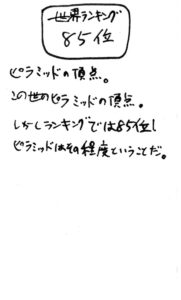 世界ランキング
85位
ピラミッドの頂点。
この世のピラミッドの頂点。
しかしランキングでは85位！
ピラミッドはその程度ということだ。